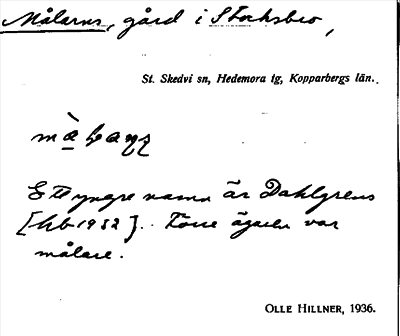 Målarns, gård i Storhsbro,
St. Skedvi sn, Hedemora tg, Kopparbergs län.
Ett yngre namn är Dahlgrens
[hb 1932]. Förre ägaren var
målare.
OLLE HILLNER, 1936.